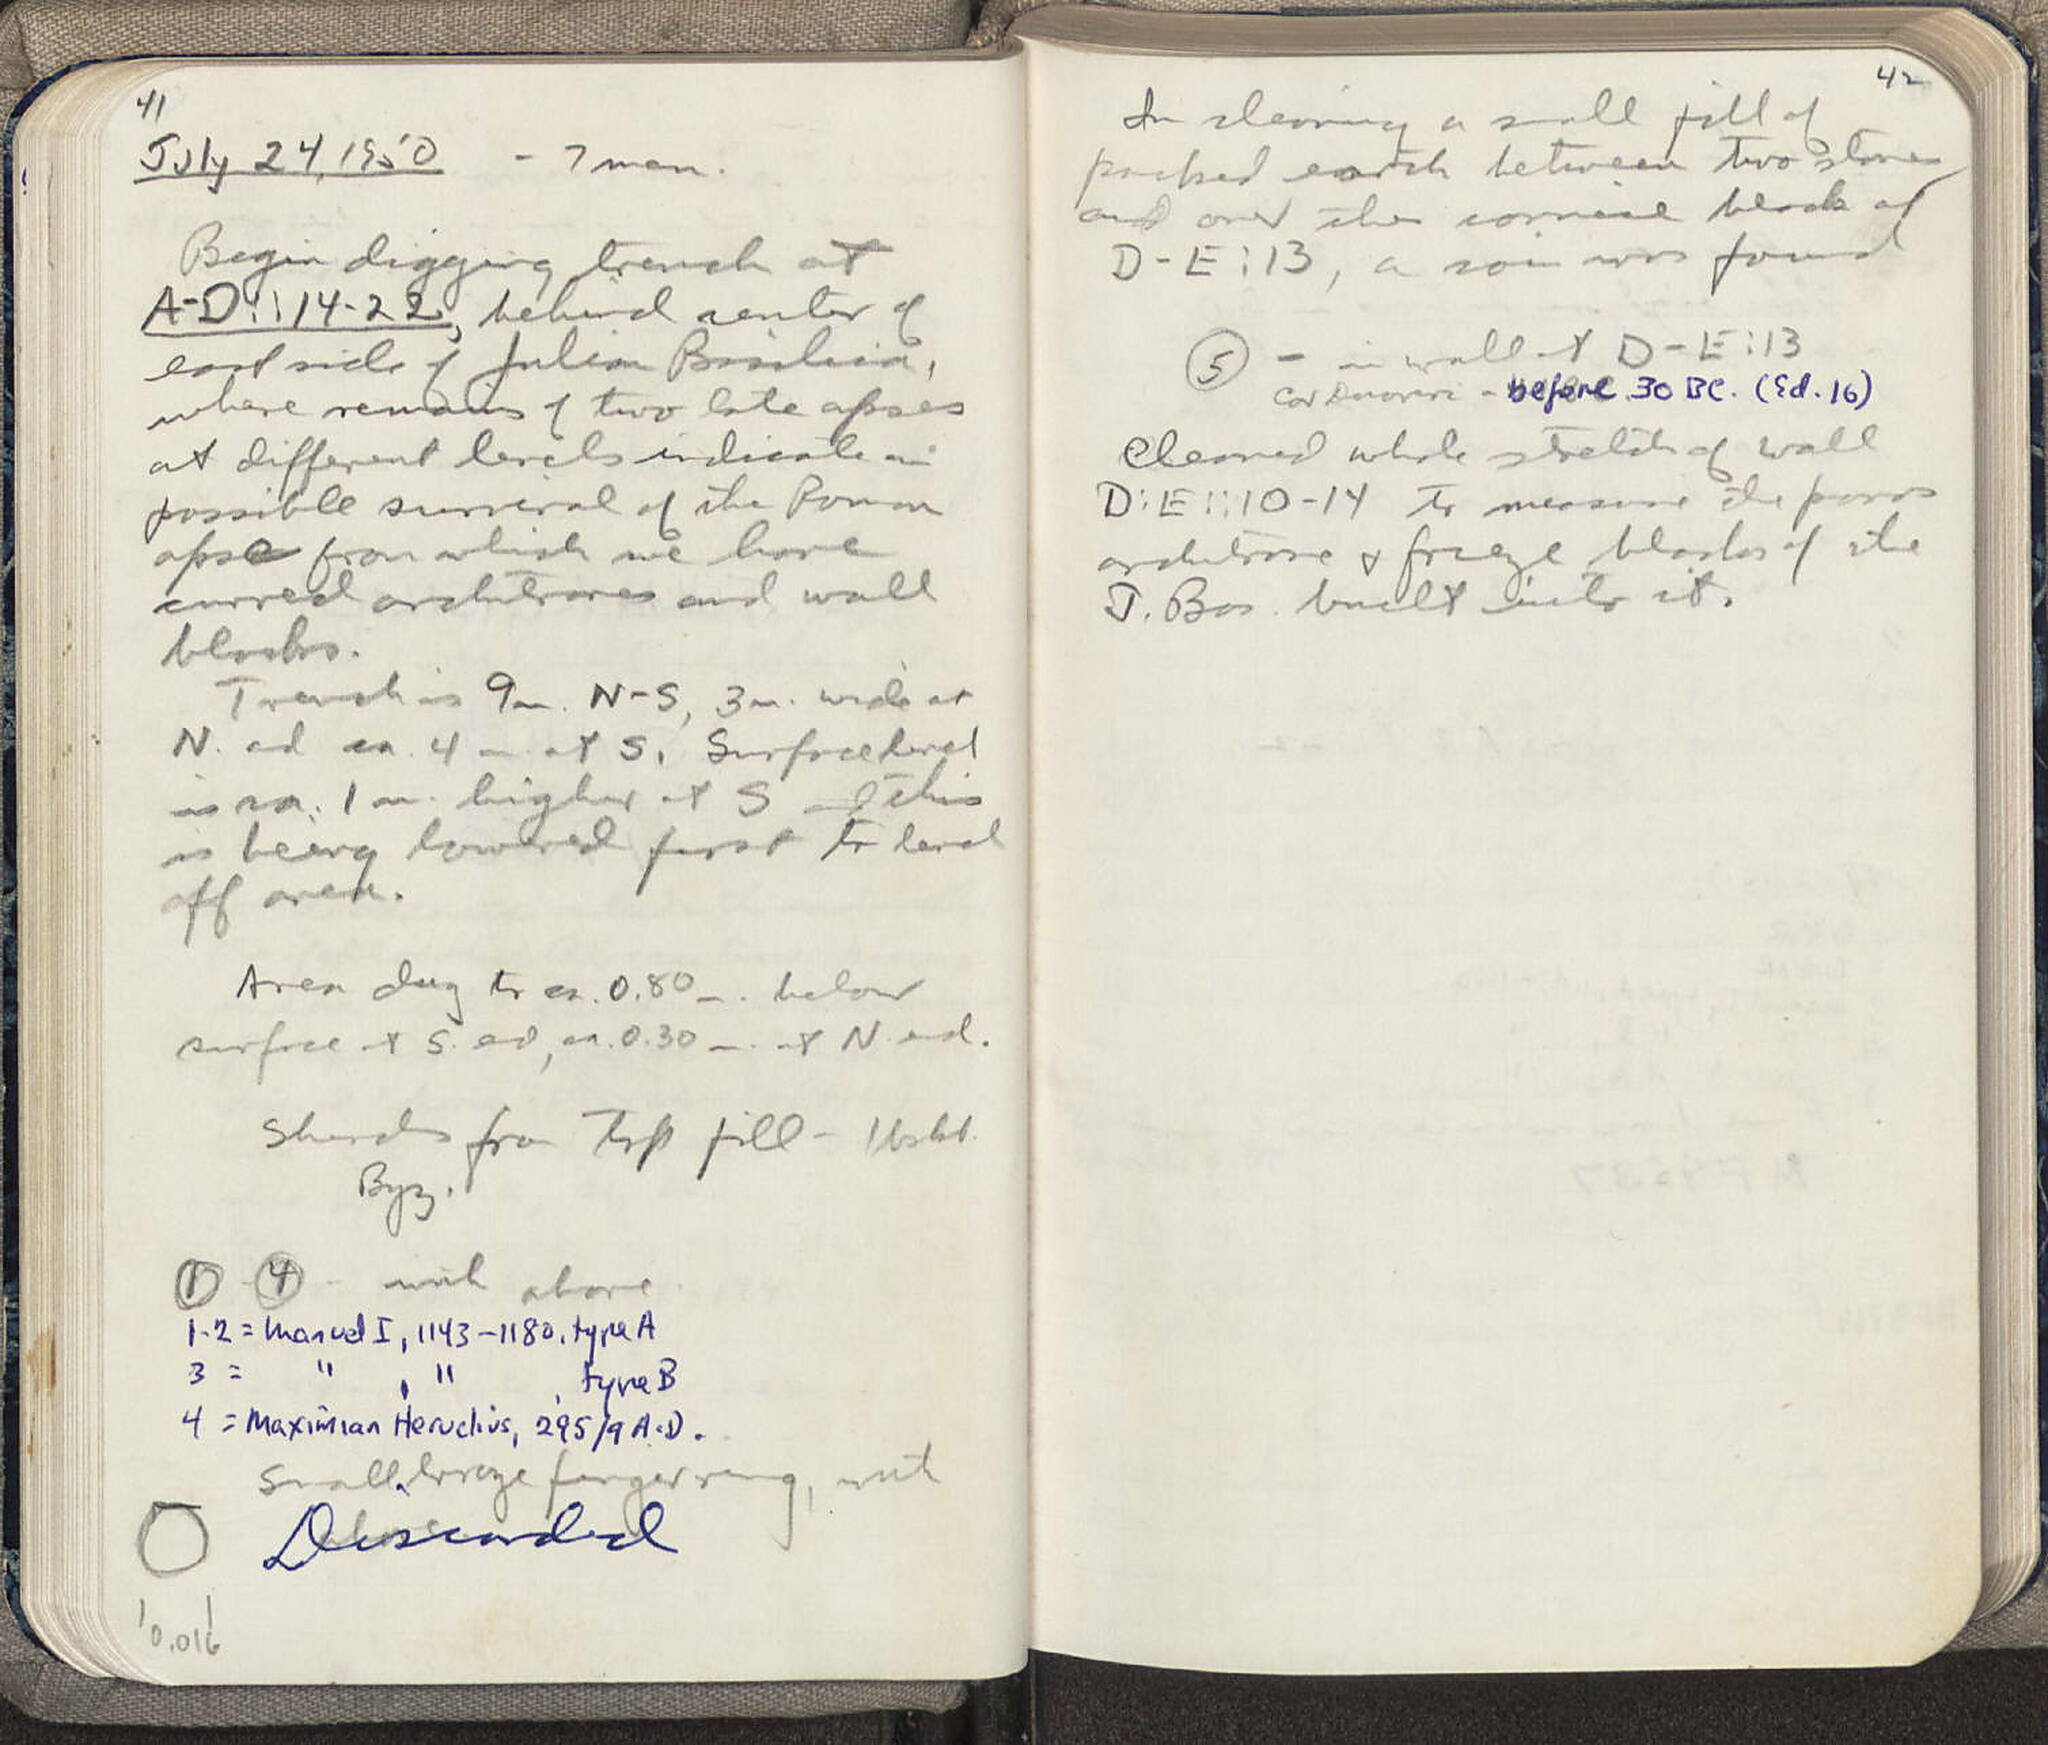 41
July 24, 1950 - 7 men.
Begin digging trench at
A-D::14-22, behind center of
east side of Julian Basilica,
where remains of two late apses
at different levels indicate a
possible survival of the Roman
apse from which we have
curved architraves and wall
blocks.
Trench is 9 m. N-S, 3 m. wide at
N. end ca. 4 m. at S. Surface level
is ca. 1 m. higher at S and this
is being lowered first to level
off area.
Area dug to ca. 0.80 m. below
surface at S. end, ca. 0.30 m. at N. end.
Sherds from top fill -
Byz.
1 - 4 - with above
1-2 = Manuel I, 1143-1180, type A
3 = " , " , type B
4 = Maximian Herculius, 295/9 A.D.
Small bronze finger ring, with
Discarded
0.016
42
In cleaning a small fill of
packed earth between two stones
and over the cornice block at
D-E:13, a coin was found
5 - in wall at D-E:13
before 30 BC. (Ed. 16)
Cleaned whole stretch of wall
D:E::10-14 to measure the poros
architrave & frieze blocks of the
J. Bas. built into it.